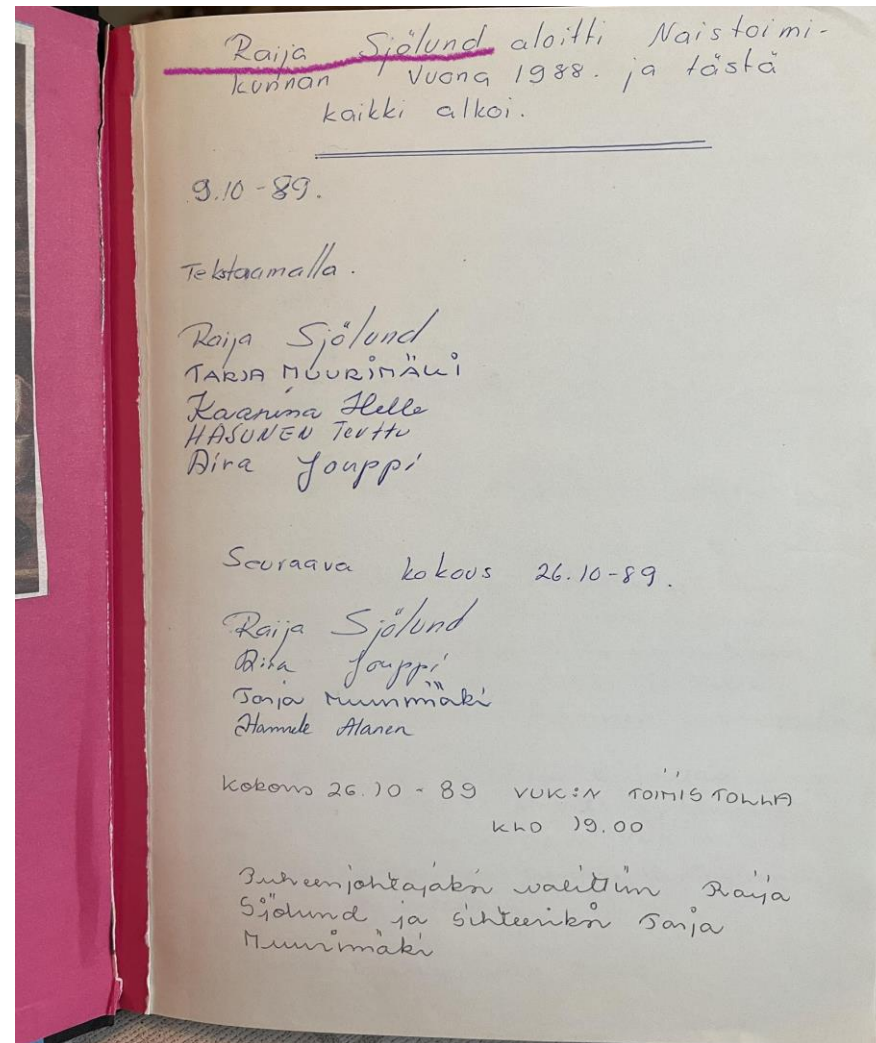 Raija Sjölund aloitti Naistoimi-
kunnan Vuona 1988. ja tästä
kaikki alkoi.
9.10-89.
Tekstaamalla.
Raija Sjölund
TARJA MUURIMÄKI
Kaarina Helle
HASUNEN Terttu
Aira Jouppi
Seuraava kokous 26.10-89.
Raija Sjölund
Aira Jouppi
Tarja Muurimäki
Hannele Alanen
kokous 26.10-89 VUK:N TOIMISTOLLA
KLO 19.00
Puheenjohtajaksi valittiin Raija
Sjölund ja sihteeriksi Tarja
Muurimäki